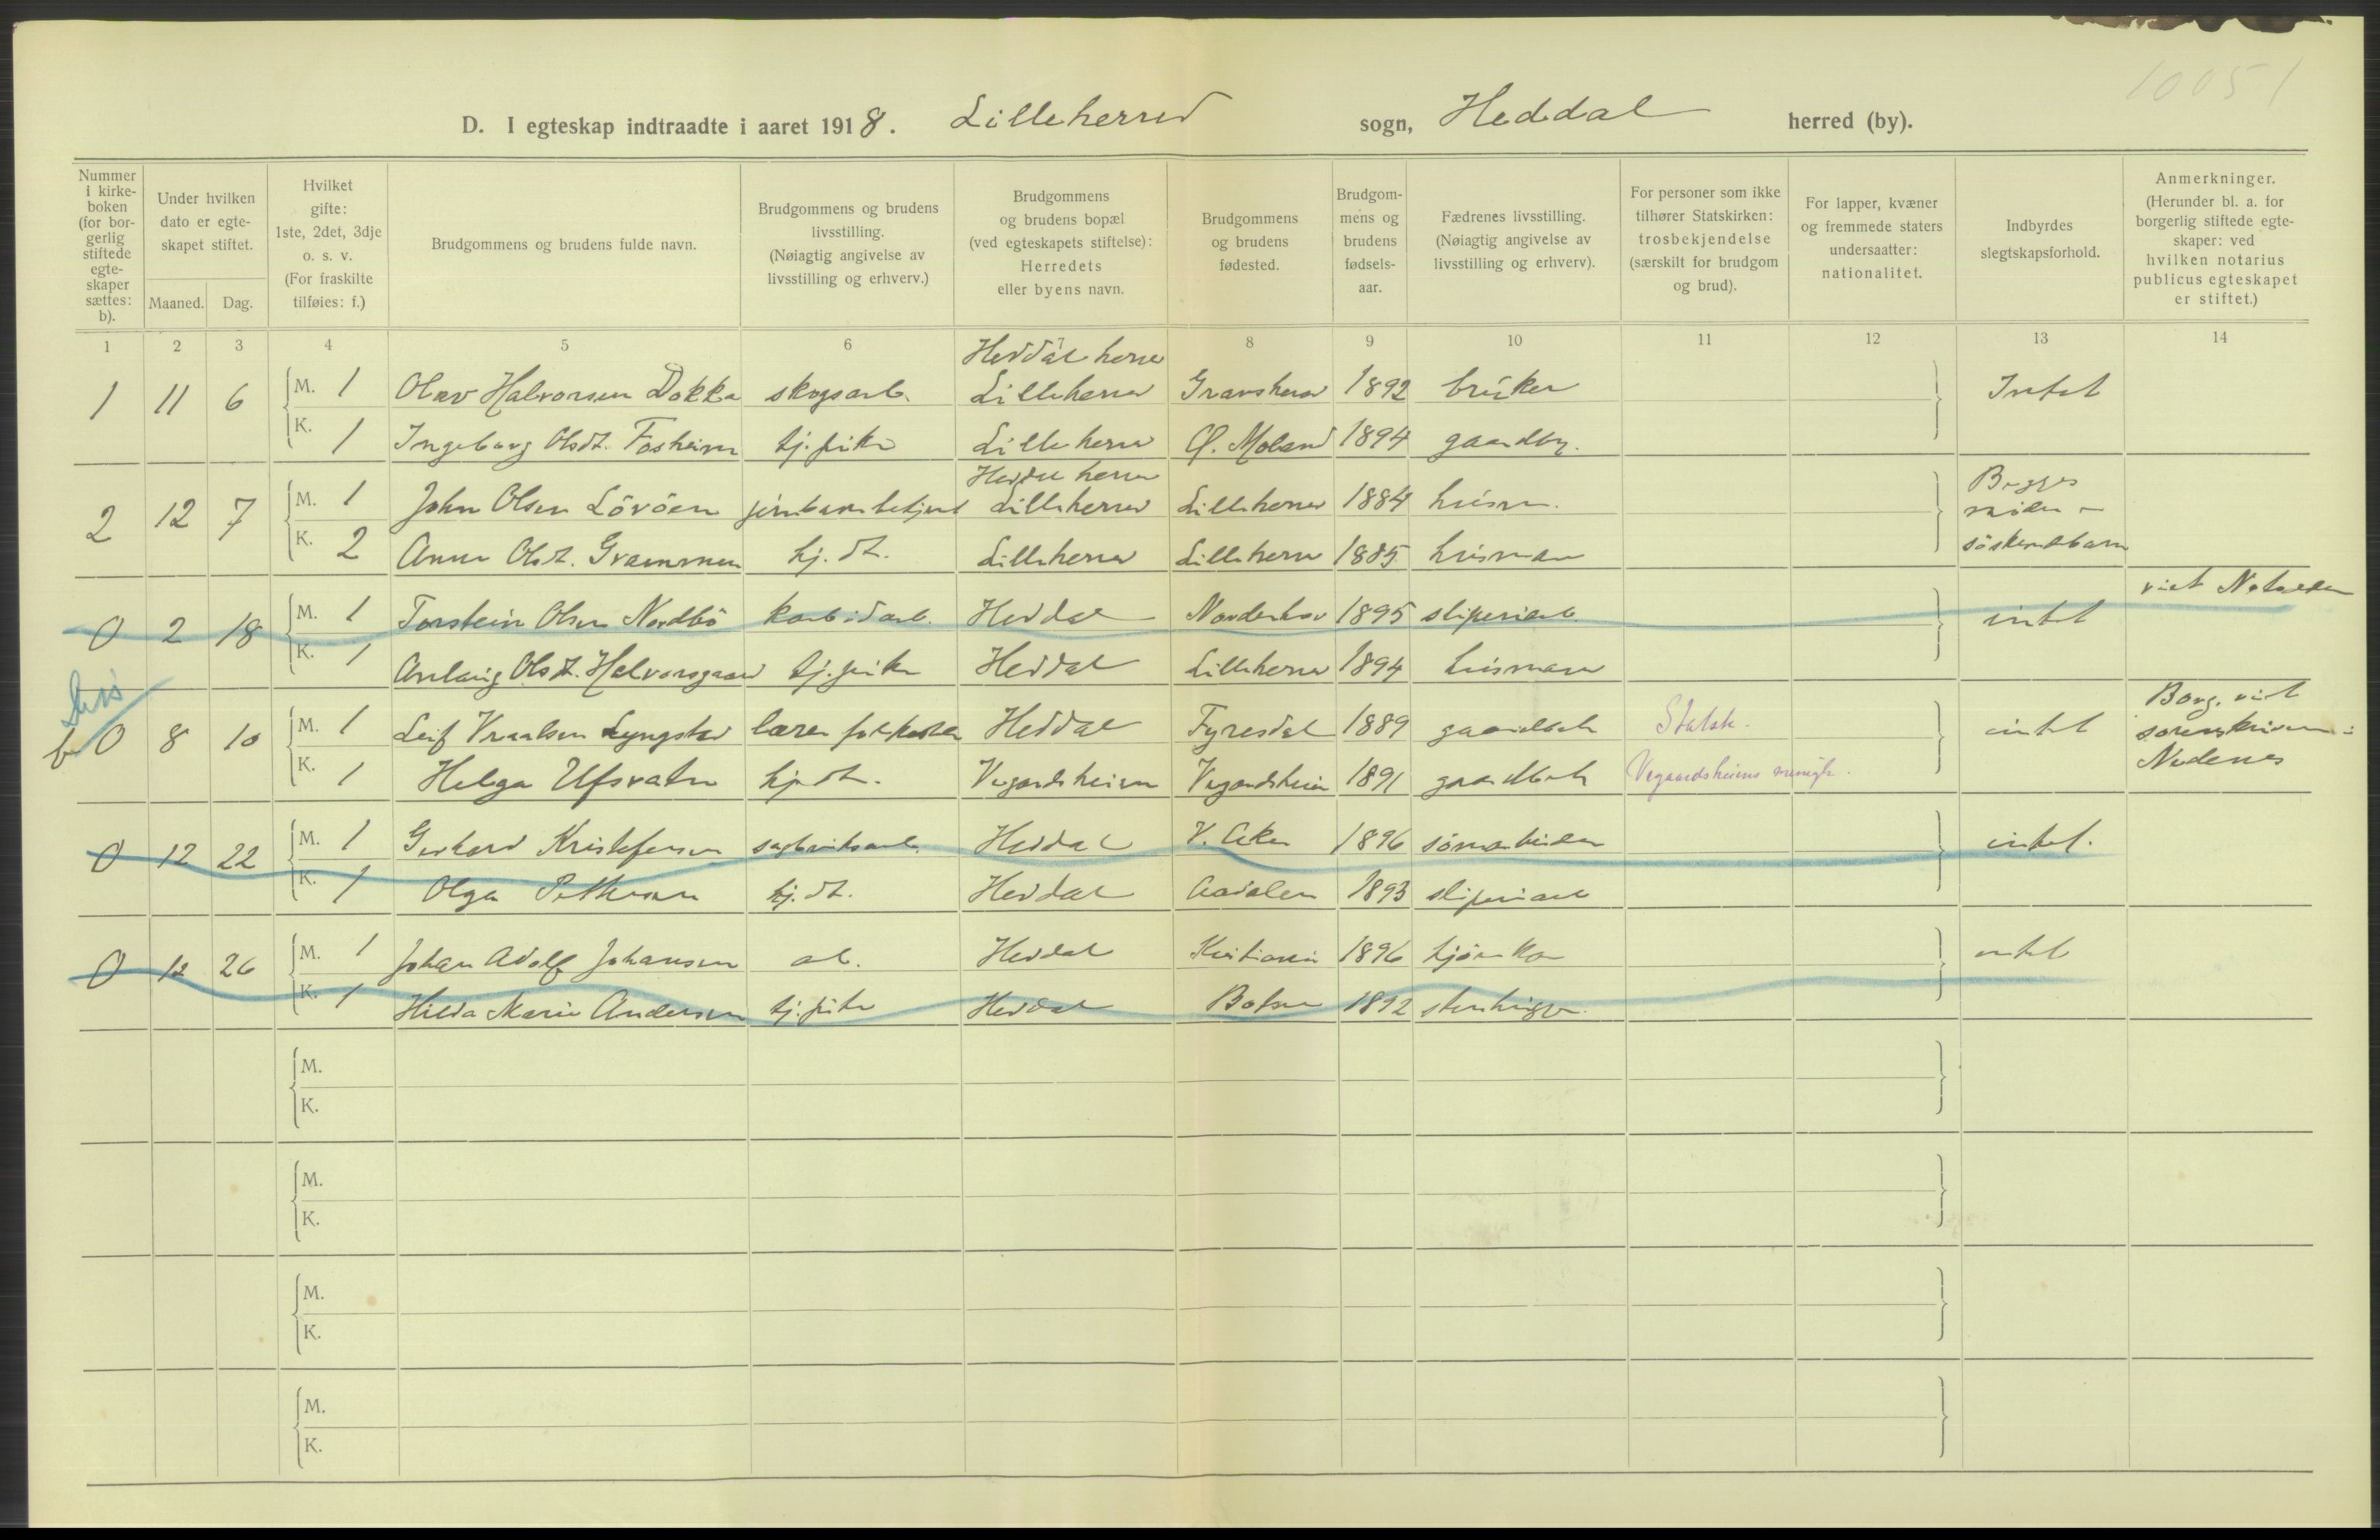 10051
D. I egteskap indtraadte i aaret 1918. Lilleherred sogn, Heddal herred (by).
Nummer i kirkeboken (for borgerlig stiftede egteskaper sættes: b).
Under hvilken dato er egteskapet stiftet.
Maaned. Dag.
Hvilket gifte: 1ste, 2det, 3dje o. s. v. (For fraskilte tilføies: f.)
Brudgommens og brudens fulde navn.
Brudgommens og brudens livsstilling. (Nøiagtig angivelse av livsstilling og erhverv.)
Brudgommens og brudens bopæl (ved egteskapets stiftelse): Herredets eller byens navn.
Brudgommens og brudens fødested.
Brudgommens og brudens fødselsaar.
Fædrenes livsstilling. (Nøiagtig angivelse av livsstilling og erhverv).
For personer som ikke tilhører Statskirken: trosbekjendelse (særskilt for brudgom og brud).
For lapper, kvæner og fremmede staters undersaatter: nationalitet.
Indbyrdes slegtskapsforhold.
Anmerkninger. (Herunder bl. a. for borgerlig stiftede egteskaper: ved hvilken notarius publicus egteskapet er stiftet.)
1 2 3 4 5 6 7 8 9 10 11 12 13 14
Heddal herre
1 11 6 M. 1 Olav Halvorsen Dokka skogsarb. Lilleherre Gransherad 1892 bruker Intet
K. 1 Ingeborg Olsdt. Fosheim tj.pike Lilleherre Ø. Moland 1894 gaardbr.
Heddal herre
2 12 7 M. 1 John Olsen Lövöen jernbanebetjent Lilleherred Lilleherre 1884 husm. Begges
K. 2 Anna Olsdt. Grammen hj. dt. Lilleherre Lilleherre 1885 husman söskendebarn
viet Notodden
0 2 18 M. 1 Torstein Olsen Nordbö karbidarb. Heddal Norderhov 1895 sliperiarb intet
K. 1 Olsdt. Halvorsgaard tj.pike Heddal Lilleherre 1894 husman
b 0 8 10 M. 1 Leif Vraalsen Lyngstad lærer folkeskolen Heddal Fyresdal 1889 gaardbruk Statsk. intet Borg. viet
sorenskriveren i
K. 1 Helga Ufsvatn hj. dt. Vegardsheien Vegardsheien 1891 gaardbruk Vegaardsheiens menigh. Nedenes
0 12 22 M. 1 Gerhard Kristofersen sagbruksarb. Heddal V. Aker 1896 intet.
K. 1 Olga Pettersen hj. dt. Heddal Aadalen 1893 sliperiarb
0 12 26 M. 1 Johan Adolf Johansen arb. Heddal Kristiania 1896 intet
K. 1 Hilda Marie Andersen tj.pike Heddal Botne 1892 stenhugger
M.
K.
M.
K.
M.
K.
M.
K.